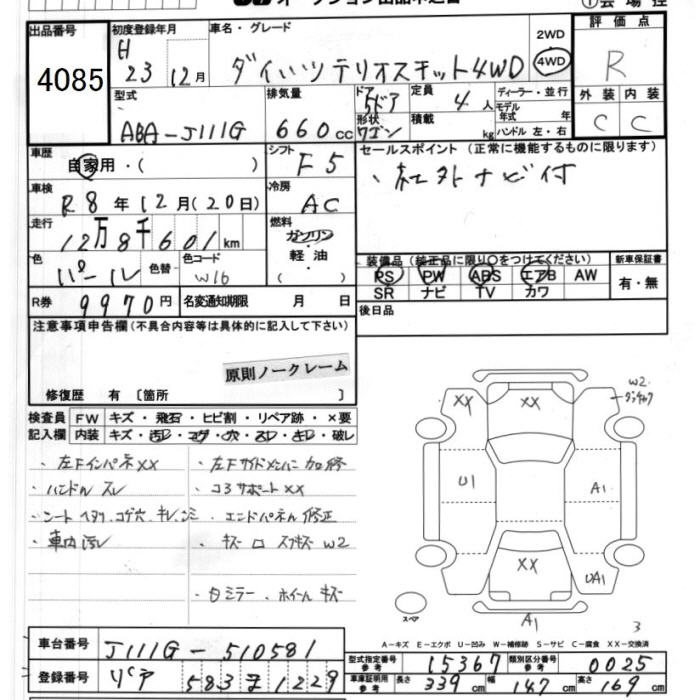 出品番号
4085
初度登録年月
H
23 12月
車名・グレード
ダイハツ テリオスキット4WD
2WD
4WD
評価点
R
型式
ABA-J111G
排気量
660cc
ドア
5ドア
形状
ワゴン
定員
4人
積載
kg
ディーラー・並行
モデル
年式 年
ハンドル 左・右
外装 内装
C C
車歴
自家用・( )
シフト
F5
セールスポイント (正常に機能するものに限ります)
、社外ナビ付
車検
R8年12月(20日)
冷房
AC
走行
12万8千601km
燃料
ガソリン
軽油
( )
色
パール
色替
色コード
W16
装備品 (純正品に限り○をつけてください)
PS PW ABS エアB AW
SR ナビ TV カワ
新車保証書
有・無
R券
9970円
名変通知期限 月 日
後日品
注意事項申告欄(不具合内容等は具体的に記入して下さい)
原則ノークレーム
修復歴 有〔箇所 〕
検査員 FW キズ・飛石・ヒビ割・リペア跡・×要
記入欄 内装 キズ・汚レ・コゲ・穴・スレ・キレ・破レ
、左FインパネXX
、ハンドル スレ
、シート ヘタリ、コゲ穴、キレ、シミ
、車内汚レ
、左Fサイドメンバー 加修
、コアサポートXX
、エンドパネル 修正
、キズ ロ スアキズ W2
、白ミラー、ホイールキズ
XX XX W2
U1 A1
XX UA1
A1
スペア
3
A-キズ E-エクボ U-凹み W-補修跡 S-サビ C-腐食 XX-交換済
車台番号
J111G-510581
登録番号
583 1229
型式指定番号
参考
15367
類別区分番号
参考
0025
車庫証明用
参考
長さ 339cm
幅 147cm
高さ 169cm